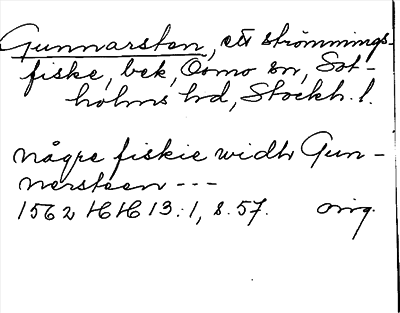 Gunnarsten, ett strömmings-
fiske, bek, Ösmo sn, Sot-
holms hd, Stockh. l.
någre fiskie widh Gun-
nersteen ---
1562 HH 13:1, s. 57. orig.